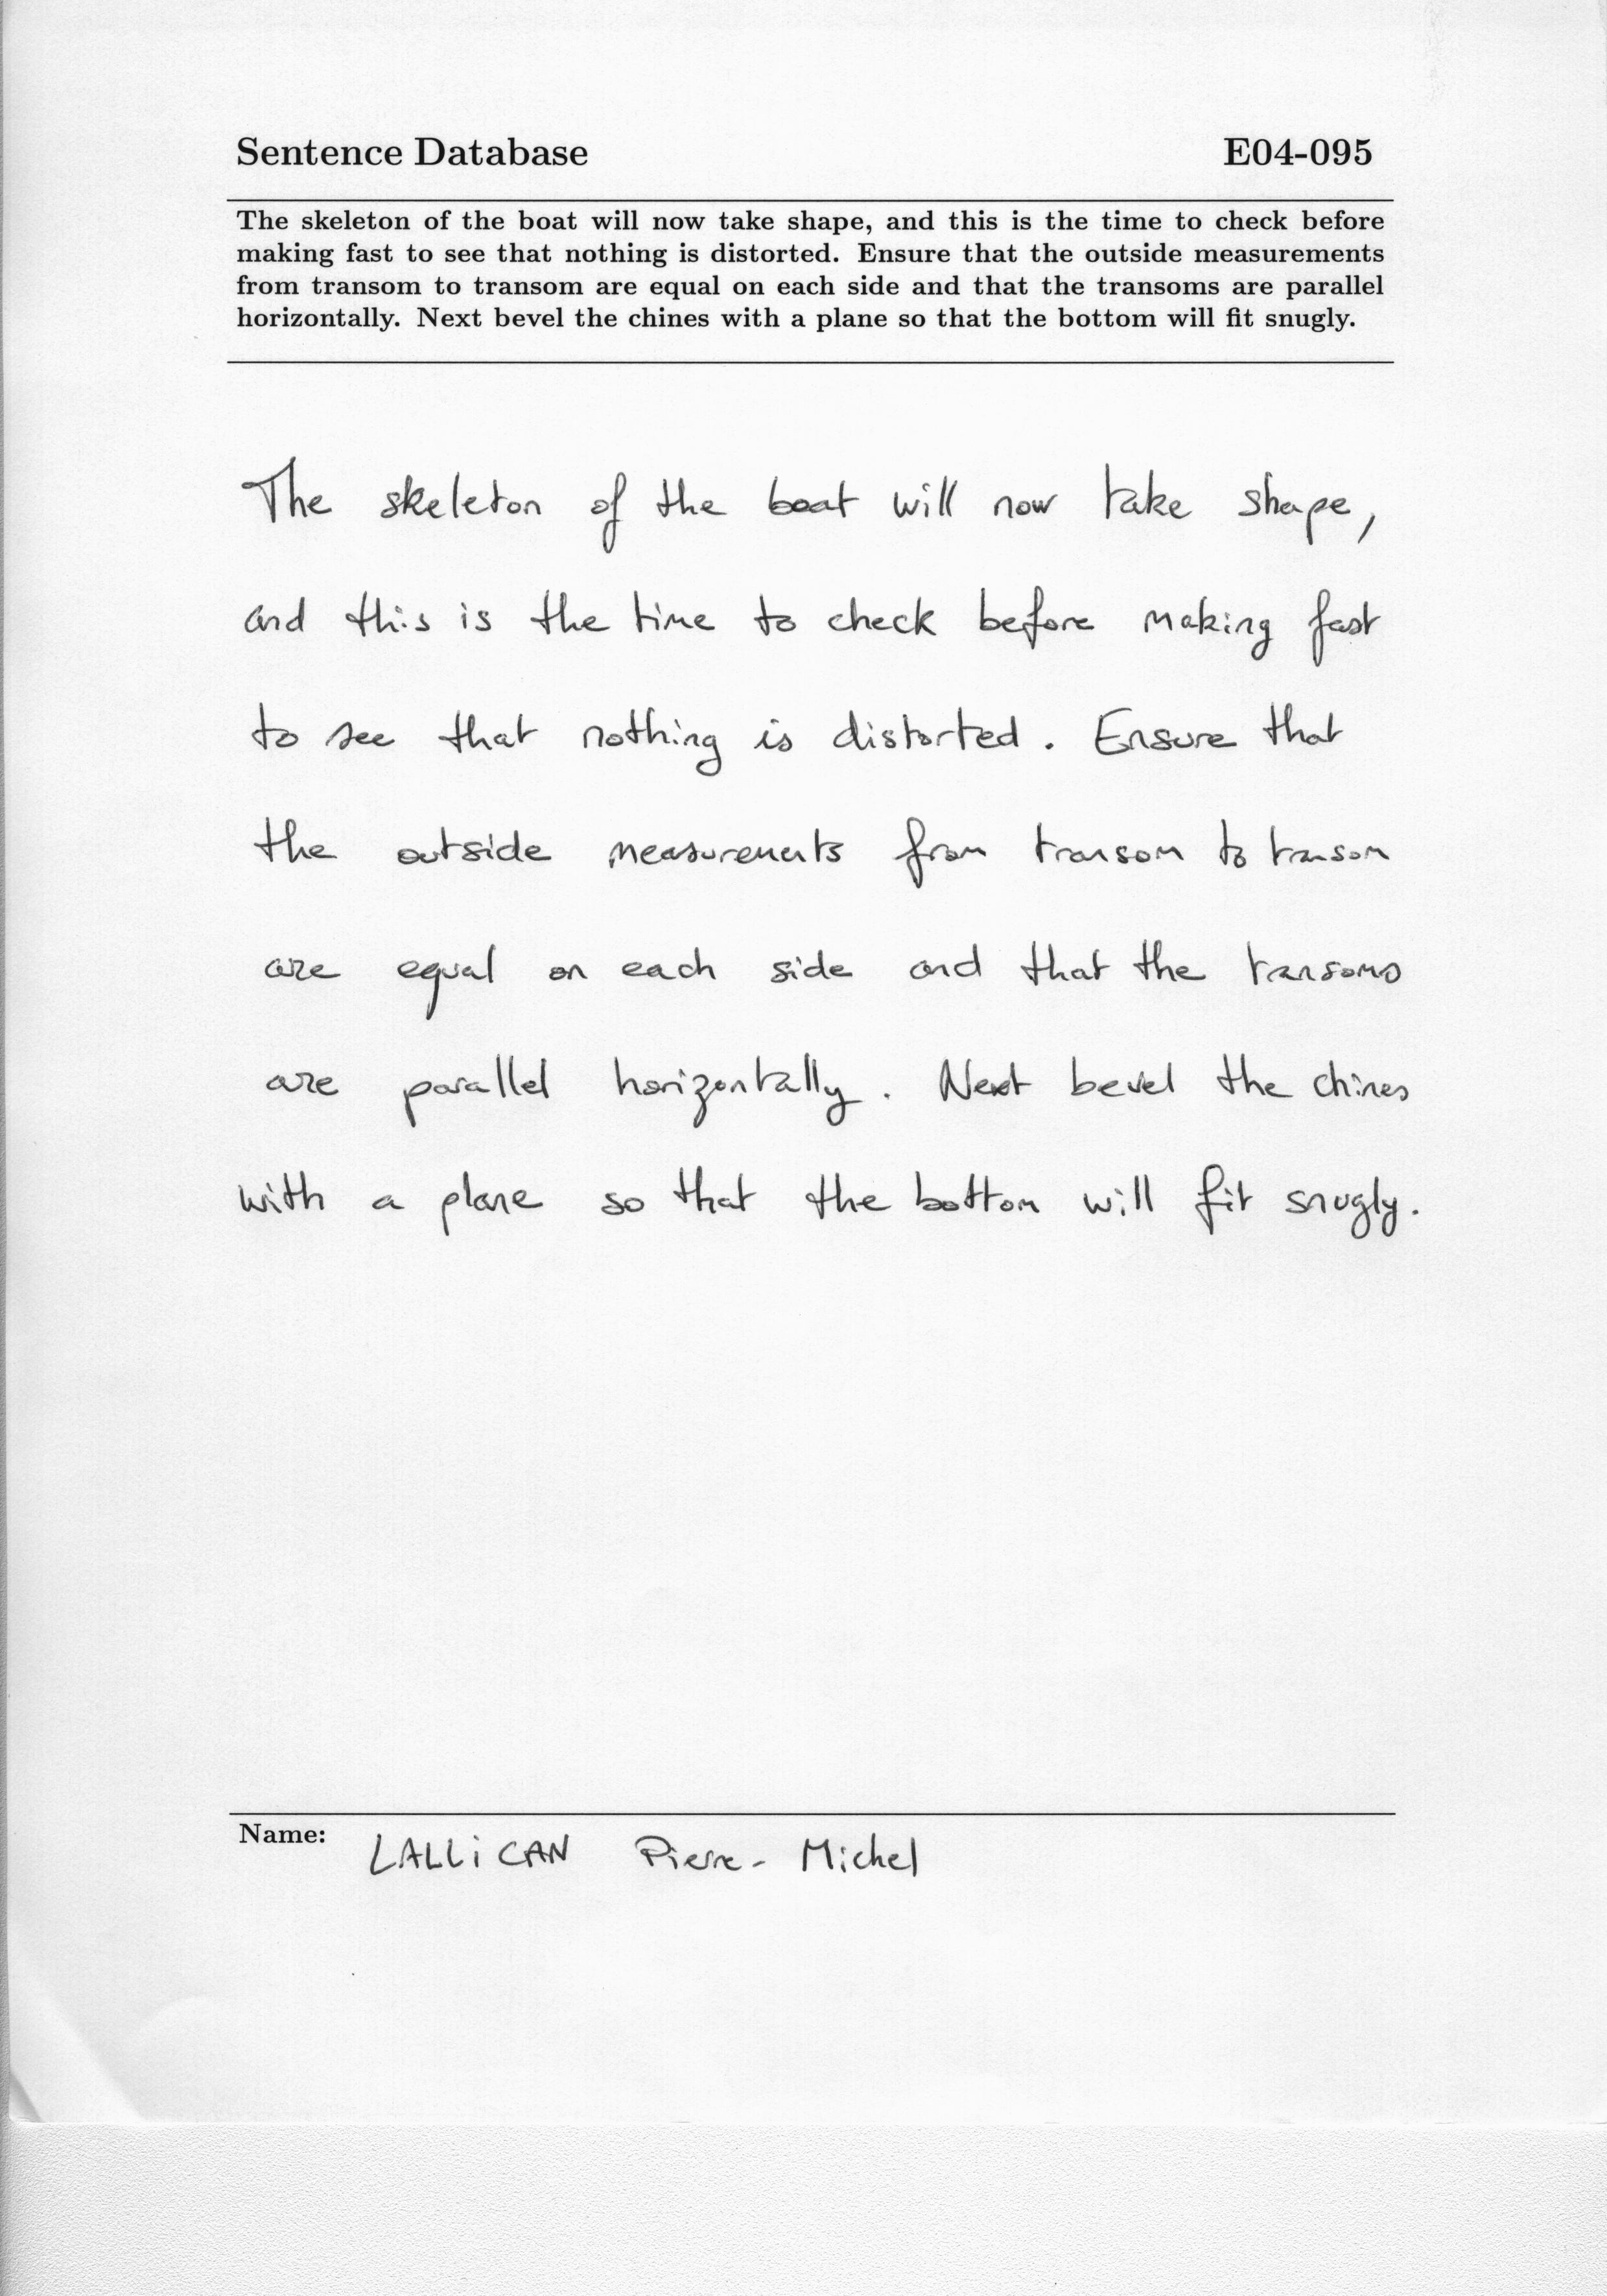 Sentence Database E04-095
The skeleton of the boat will now take shape, and this is the time to check before
making fast to see that nothing is distorted. Ensure that the outside measurements
from transom to transom are equal on each side and that the transoms are parallel
horizontally. Next bevel the chines with a plane so that the bottom will fit snugly.
The skeleton of the boat will now take shape,
and this is the time to check before making fast
to see that nothing is distorted. Ensure that
the outside measurements from transom to transom
are equal on each side and that the transoms
are parallel horizontally. Next bevel the chines
with a plane so that the bottom will fit snugly.
Name: LALLiCAN Pierre-Michel